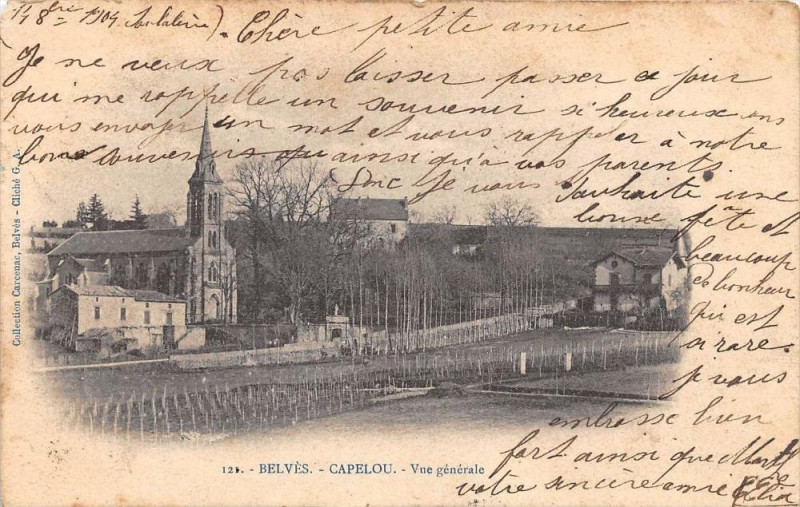 8bre 1904
Chère petite amie
Je ne veux pas laisser passer ce jour
qui me rappelle un souvenir si heureux sans
vous envoyer un mot et vous rappeler à notre
bon souvenir ainsi qu'à vos parents.
Donc Je vous souhaite une
bonne fête et
beaucoup
de bonheur
qui est
si rare.
Je vous
embrasse bien
fort ainsi que
votre sincère amie
Collection Carcenac, Belvès - Cliché G. A.
12 . - BELVÈS. - CAPELOU. - Vue générale